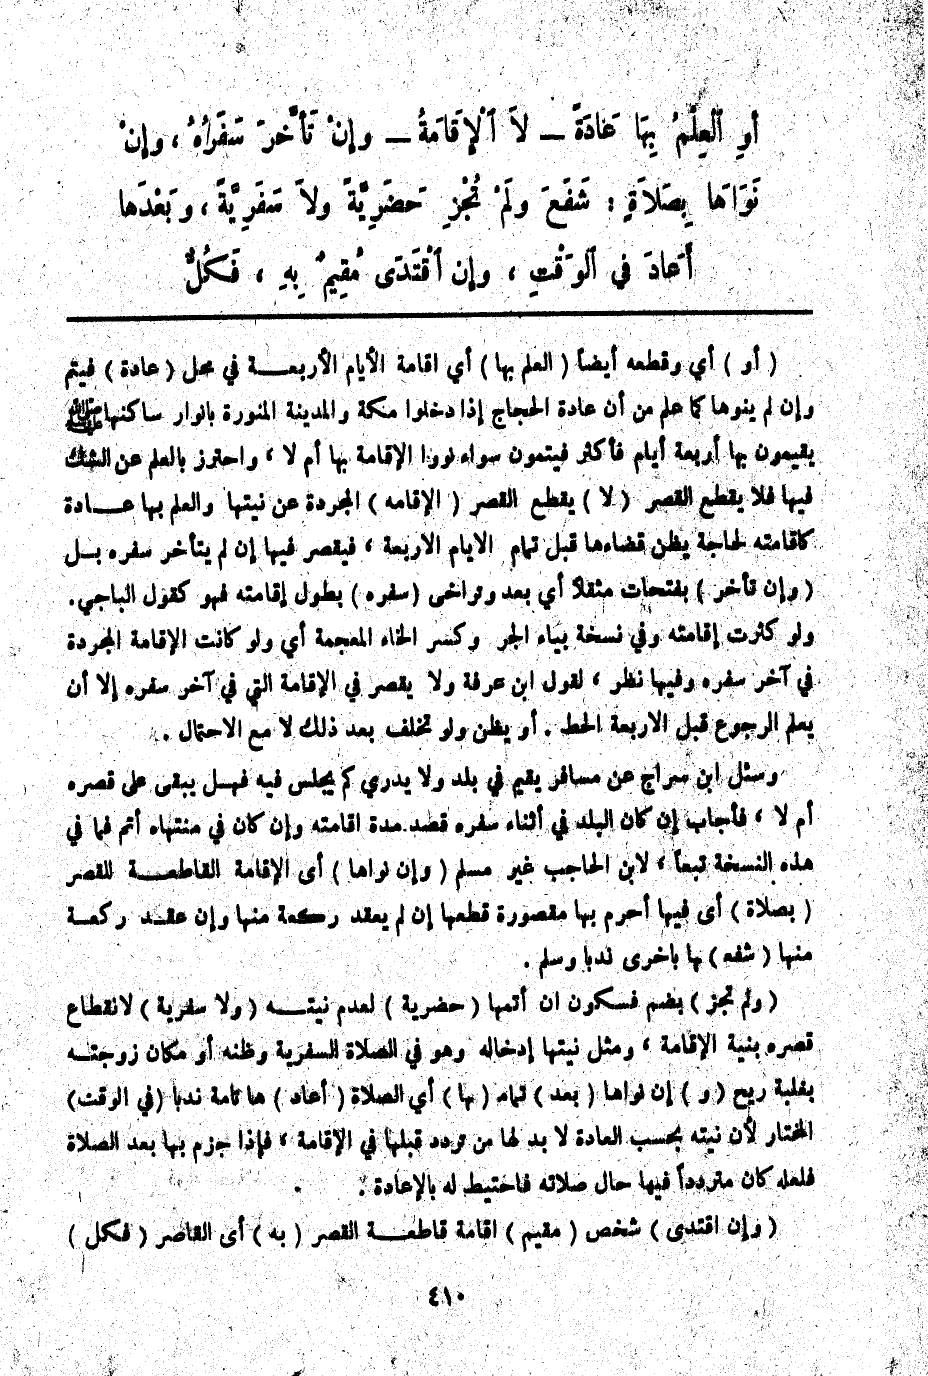 أَوِ ٱلْعِلْمُ بِهَا عَادَةً ــ لاَ ٱلْإِقَامَةُ ــ وإِنْ تَأَخَّرَ سَفَرُهُ ، وإِنْ
نَوَاهَا بِصَلاَةٍ : شَفَعَ ولَمْ تُجْزِ حَضَرِيَّةً ولاَ سَفَرِيَّةً ، و بَعْدَها
أَعَادَ في ٱلوَقْتِ ، وإن ٱقْتَدَى مُقِيمٌ بِهِ ، فَكُلٌّ
( أو ) أي وقطعه أيضاً ( العلم بها ) أي اقامة الأيام الأربعـــة في محل ( عادة ) فيتم
وإن لم ينوها كما علم من أن عادة الحجاج إذا دخلوا مكة والمدينة المنورة بانوار ساكنها ﷺ
يقيمون بها أربعة أيام فأكثر فيتمون سواء نووا الإقامة بها أم لا ، واحترز بالعلم عن الشك
فيها فلا يقطع القصر ( لا ) يقطع القصر ( الإقامه ) المجردة عن نيتها والعلم بها عـــادة
كاقامته لحاجة يظن قضاءها قبل تمام الايام الاربعة ، فيقصر فيها إن لم يتأخر سفره بــل
( وإن تأخر ) بفتحات مثقلاً أي بعد وتراخى ( سفره ) بطول إقامته فهو كقول الباجي.
ولو كثرت إقامته وفي نسخة بياء الجر وكسر الخاء المعجمة أي ولو كانت الإقامة المجردة
في آخر سفره وفيها نظر ، لقول ابن عرفة ولا يقصر في الإقامة التي في آخر سفره إلا أن
يعلم الرجوع قبل الاربعة الحط . أو يظن ولو تخلف بعد ذلك لا مع الاحتمال .
وسئل ابن سراج عن مسافر يقيم في بلد ولا يدري كم يجلس فيه فهــل يبقى على قصره
أم لا ، فأجاب إن كان البلد في أثناء سفره قصد مدة اقامته وإن كان في منتهاه أتم فما في
هذه النسخة تبعاً ، لابن الحاجب غير مسلم ( وإن نواها ) أى الإقامة القاطعــة للقصر
( بصلاة ) أى فيها أحرم بها مقصورة قطعها إن لم يعقد ركعة منها وإن عقــد ركعــة
منها ( شفع ) بها باخرى ندبا وسلم .
( ولم تجز ) بضم فسكون ان أتمها ( حضرية ) لعدم نيتـــه ( ولا سفرية ) لانقطاع
قصره بنية الإقامة ، ومثل نيتها إدخاله وهو في الصلاة السفرية وظنه أو مكان زوجتــه
بغلبة ريح ( و ) إن نواها ( بعد ) تمام ( بها ) أي الصلاة ( أعاد ) ها تامة ندبا (في الوقت)
المختار لأن نيته بحسب العادة لا بد لها من تردد قبلها في الإقامة ، فإذا جزم بها بعد الصلاة
فلعله كان متردداً فيها حال صلاته فاحتيط له بالإعادة .
( وإن اقتدى ) شخص ( مقيم ) اقامة قاطعـــة القصر ( به ) أى القاصر ( فكل )
٤١٠